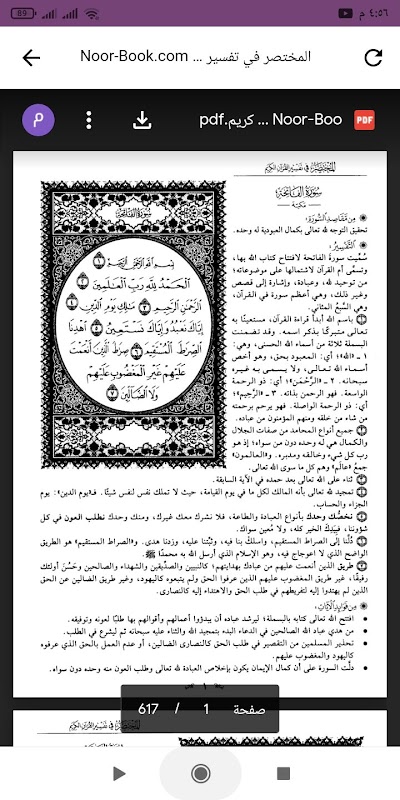 ٤:٥٦ م
89
المختصر في تفسير ... Noor-Book.com
Noor-Boo ... كريم.pdf
PDF
م
المختصر في تفسير القرآن الكريم
سورة الفاتحة
مكية
سورة الفاتحة
بسم الله الرحمن الرحيم ١
الحمد لله رب العالمين ٢
الرحمن الرحيم ٣ مالك يوم الدين ٤
إياك نعبد وإياك نستعين ٥ اهدنا
الصراط المستقيم ٦ صراط الذين أنعمت
عليهم غير المغضوب عليهم
ولا الضالين ٧
من مقاصد السورة:
تحقيق التوجه لله تعالى بكمال العبودية له وحده.
التفسير:
سُمِّيت سورة الفاتحة لافتتاح كتاب الله بها،
وتسمى أم القرآن لاشتمالها على موضوعاته؛
من توحيد لله، وعبادة، وإشارة إلى قصص
وغير ذلك، وهي أعظم سورة في القرآن،
وهي السبع المثاني.
١ باسم الله أبدأ قراءة القرآن، مستعينًا به
تعالى متبركًا بذكر اسمه. وقد تضمنت
البسملة ثلاثة من أسماء الله الحسنى، وهي:
١ - «الله»؛ أي: المعبود بحق، وهو أخص
أسماء الله تعالى، ولا يسمى به غيره
سبحانه. ٢ - «الرَّحْمن»؛ أي: ذو الرحمة
الواسعة. فهو الرحمن بذاته. ٣ - «الرَّحِيم»؛
أي: ذو الرحمة الواصلة. فهو يرحم برحمته
من شاء من خلقه ومنهم المؤمنون من عباده.
٢ جميع أنواع المحامد من صفات الجلال
والكمال هي له وحده دون من سواه؛ إذ هو
رب كل شيء وخالقه ومدبره. و«العالمون»
جمع «عالَم» وهم كل ما سوى الله تعالى.
٣ ثناء على الله تعالى بعد حمده في الآية السابقة.
٤ تمجيد لله تعالى بأنه المالك لكل ما في يوم القيامة، حيث لا تملك نفس لنفس شيئًا. فـ«يوم الدين»: يوم
الجزاء والحساب.
٥ نخصُّك وحدك بأنواع العبادة والطاعة، فلا نشرك معك غيرك، ومنك وحدك نطلب العون في كل
شؤوننا، فبِيَدِكَ الخير كله، ولا مُعين سواك.
٦ دُلَّنا إلى الصراط المستقيم، واسلك بنا فيه، وثبِّتنا عليه، وزدنا هدى. و«الصراط المستقيم» هو الطريق
الواضح الذي لا اعوجاج فيه، وهو الإسلام الذي أرسل الله به محمدًا ﷺ.
٧ طريق الذين أنعمت عليهم من عبادك بهدايتهم؛ كالنبيين والصدِّيقين والشهداء والصالحين وحَسُنَ أولئك
رفيقًا، غير طريق المغضوب عليهم الذين عرفوا الحق ولم يتبعوه كاليهود، وغير طريق الضالين عن الحق
الذين لم يهتدوا إليه لتفريطهم في طلب الحق والاهتداء إليه كالنصارى.
من فوائد الآيات:
• افتتح الله تعالى كتابه بالبسملة؛ ليرشد عباده أن يبدؤوا أعمالهم وأقوالهم بها طلبًا لعونه وتوفيقه.
• من هدي عباد الله الصالحين في الدعاء البدء بتمجيد الله والثناء عليه سبحانه ثم ليشرع في الطلب.
• تحذير المسلمين من التقصير في طلب الحق كالنصارى الضالين، أو عدم العمل بالحق الذي عرفوه
كاليهود والمغضوب عليهم.
• دلَّت السورة على أن كمال الإيمان يكون بإخلاص العبادة لله تعالى وطلب العون منه وحده دون سواه.
١
صفحة 1 / 617
المختصر في تفسير القرآن الكريم